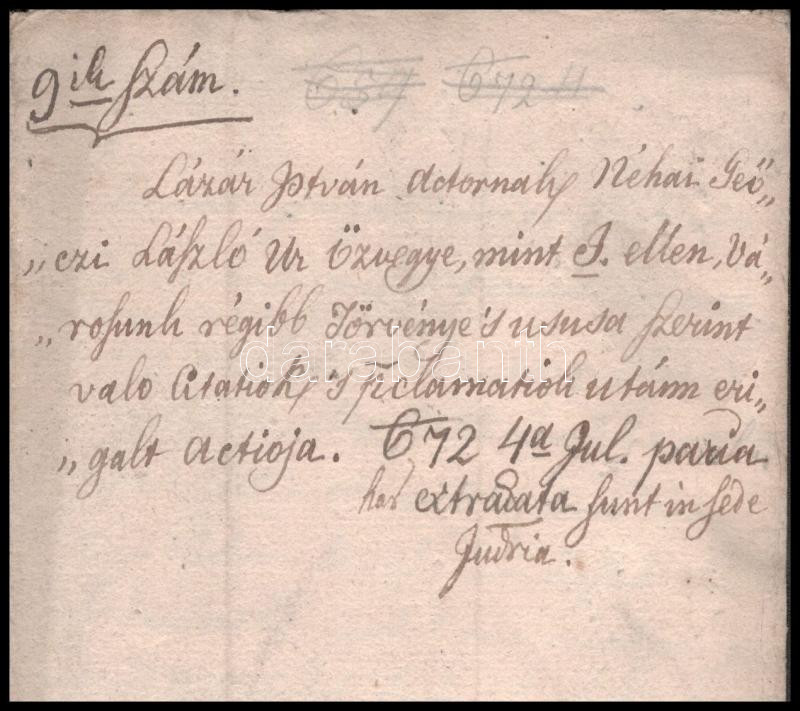 9ik Szám.
Lázár Jstván Actornak, Néhai Geö„
„czi László Ur Özvegye, mint J. ellen, Vá„
„rosunk régibb Törvénye 's ususa szerint
való Citatiok, 's pclamatiok utánn eri„
„galt Actioja. 672 4a Jul. paria
has extradata sunt in sede
Judria.
darabanth